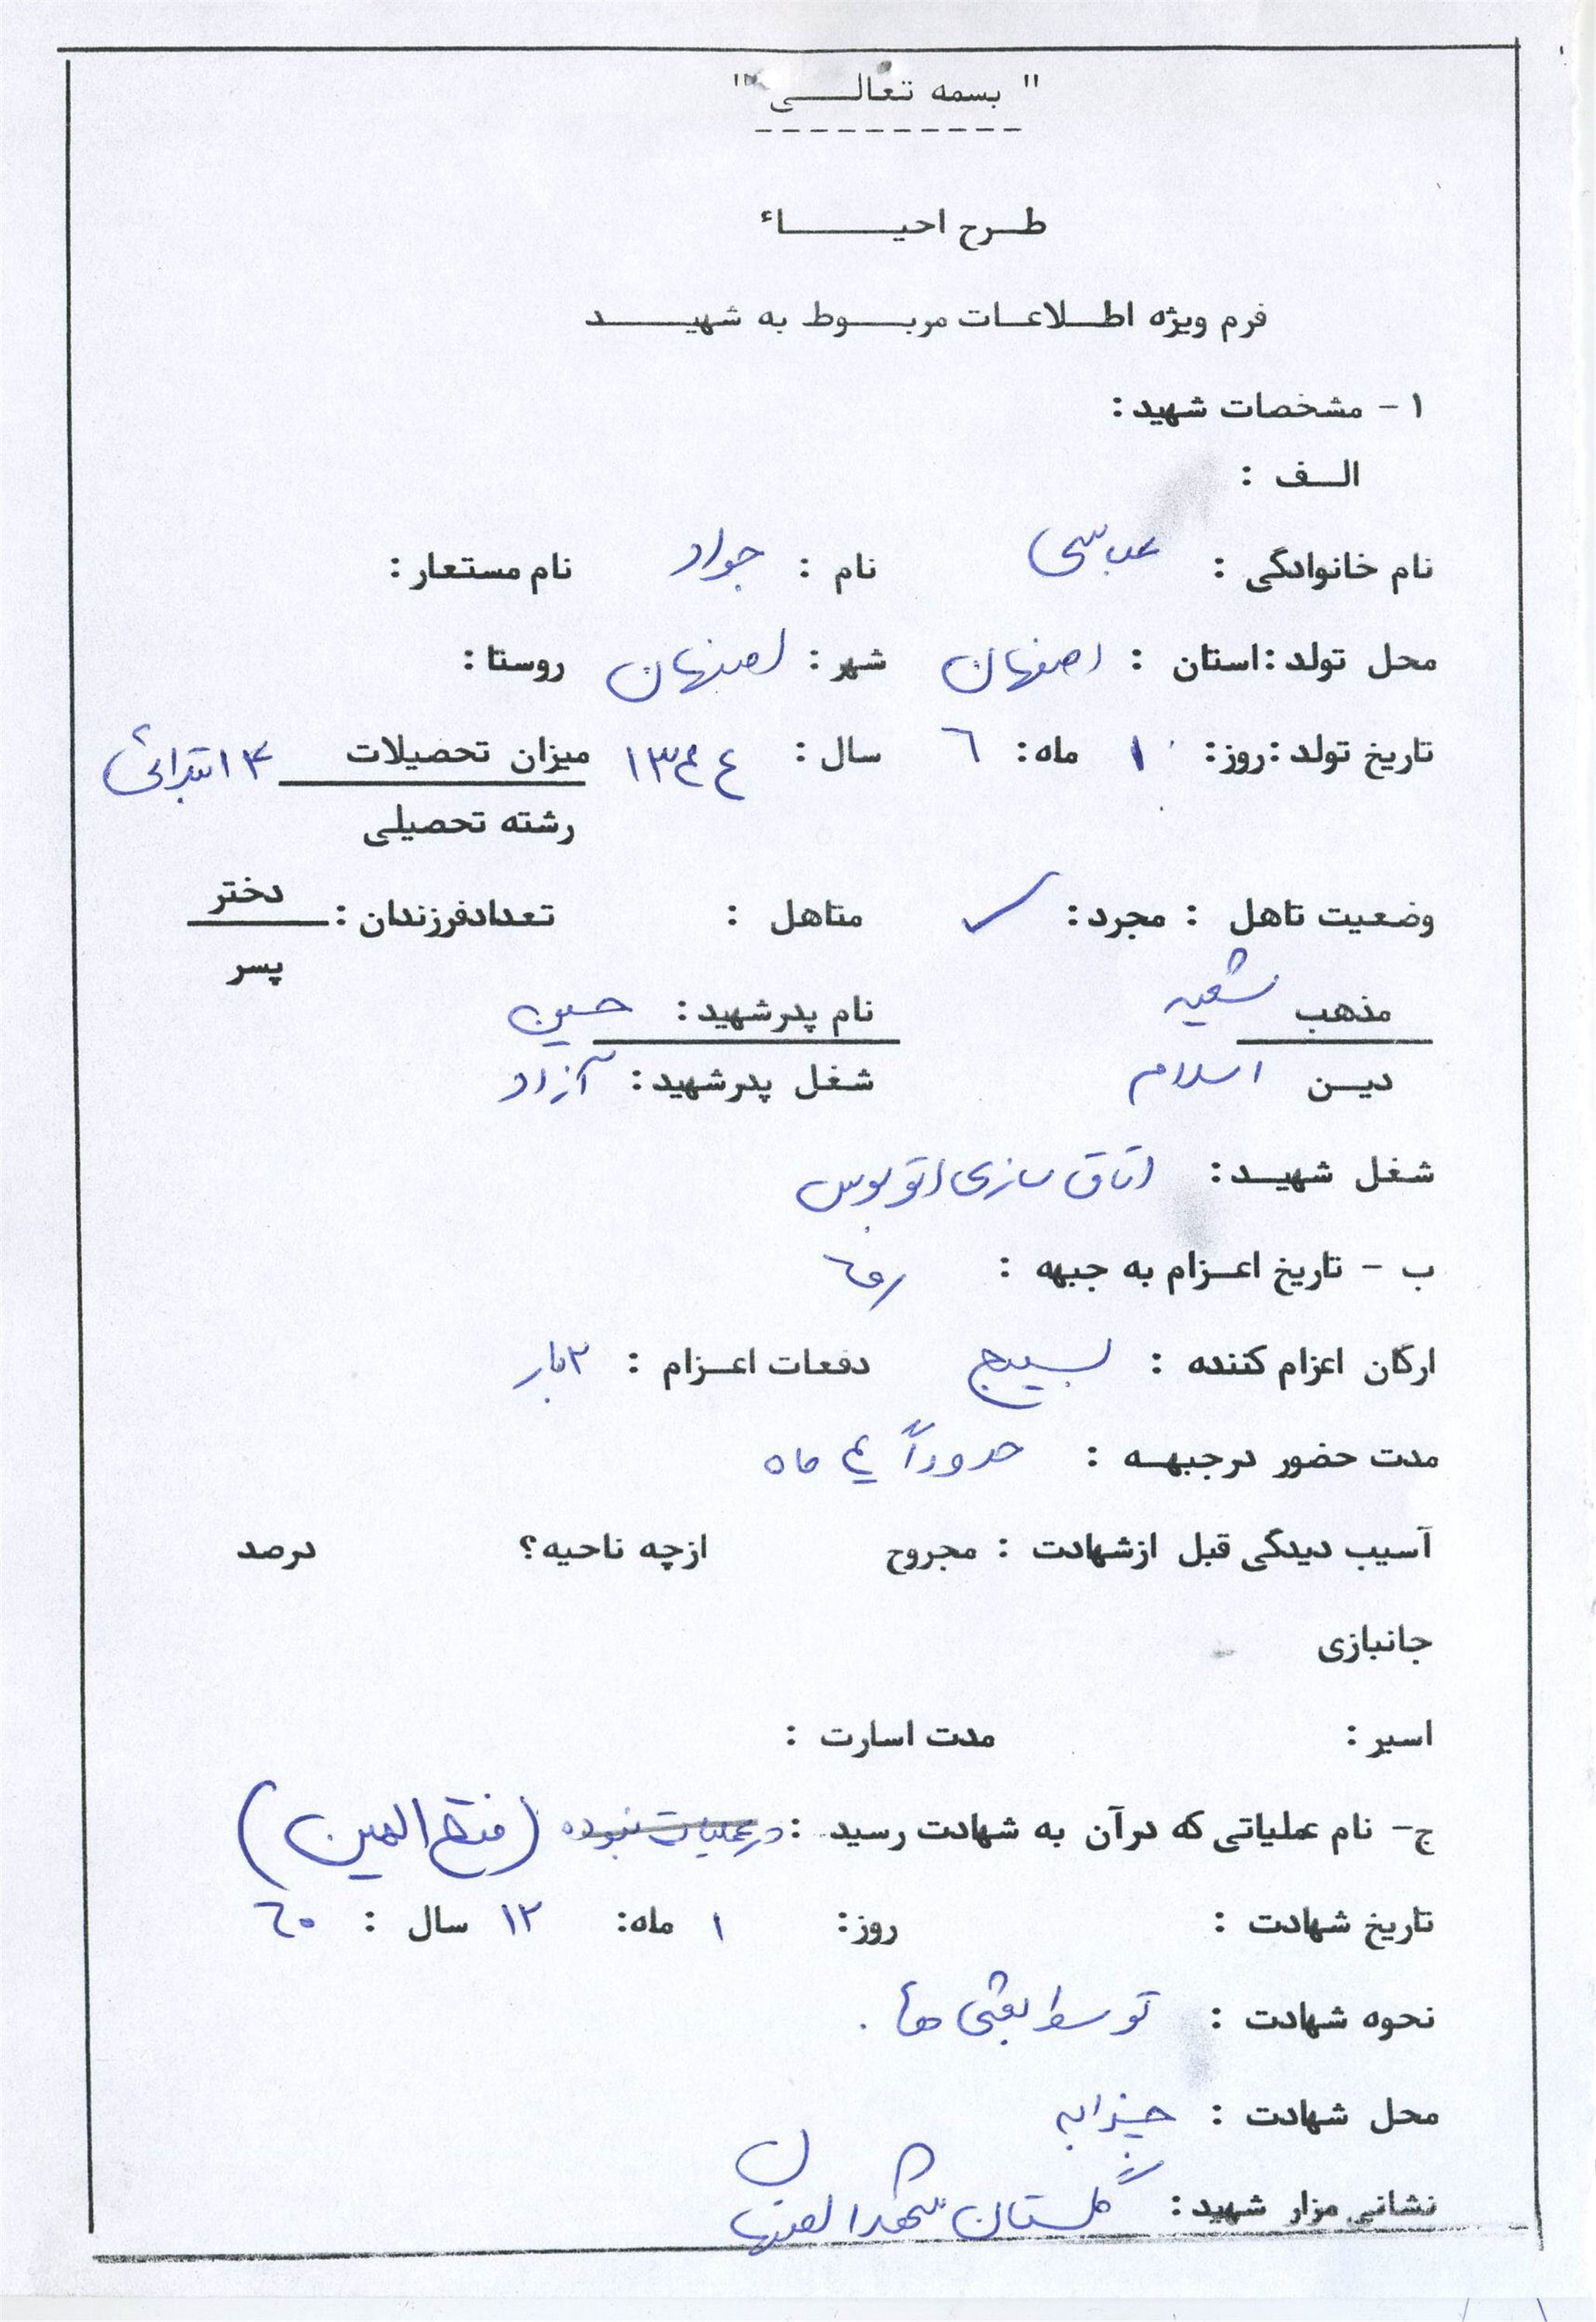 " بسمه تعالی "
طرح احیاء
فرم ویژه اطلاعات مربوط به شهید
۱ - مشخصات شهید :
الف :
نام خانوادگی : عباسی نام : جواد نام مستعار :
محل تولد : استان : اصفهان شهر : اصفهان روستا :
تاریخ تولد : روز : ۱۰ ماه : ٦ سال : ۱۳۴۴ میزان تحصیلات ۴ ابتدائی
رشته تحصیلی
وضعیت تاهل : مجرد : ✓ متاهل : تعداد فرزندان : دختر
پسر
مذهب شعیه نام پدر شهید : حسین
دین اسلام شغل پدر شهید : آزاد
شغل شهید : اتاق سازی اتوبوس
ب - تاریخ اعزام به جبهه :
ارگان اعزام کننده : بسیج دفعات اعزام : ۲ بار
مدت حضور درجبهه : حدوداً ۴ ماه
آسیب دیدگی قبل ازشهادت : مجروح ازچه ناحیه؟ درصد
جانبازی
اسیر : مدت اسارت :
ج - نام عملیاتی که درآن به شهادت رسید : در عملیات نبوده (فتح المبین)
تاریخ شهادت : روز : ۱ ماه : ۱۲ سال : ٦۰
نحوه شهادت : توسط بعثی ها .
محل شهادت : چزابه
نشانی مزار شهید : گلستان شهدا اصفهان